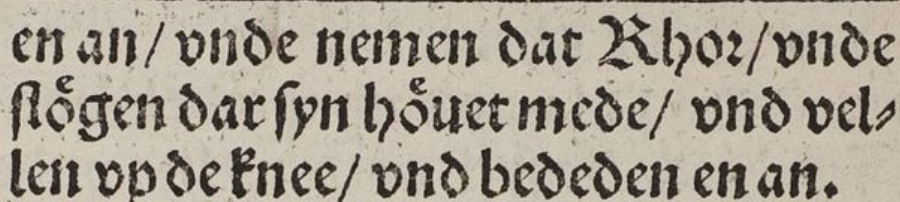 en an/ vnde nemen dat Rhor/vnde
ſloͤgen dar ſyn hoͤuet mede/ vnd vel⸗
len vp de knee/ vnd bededen en an.